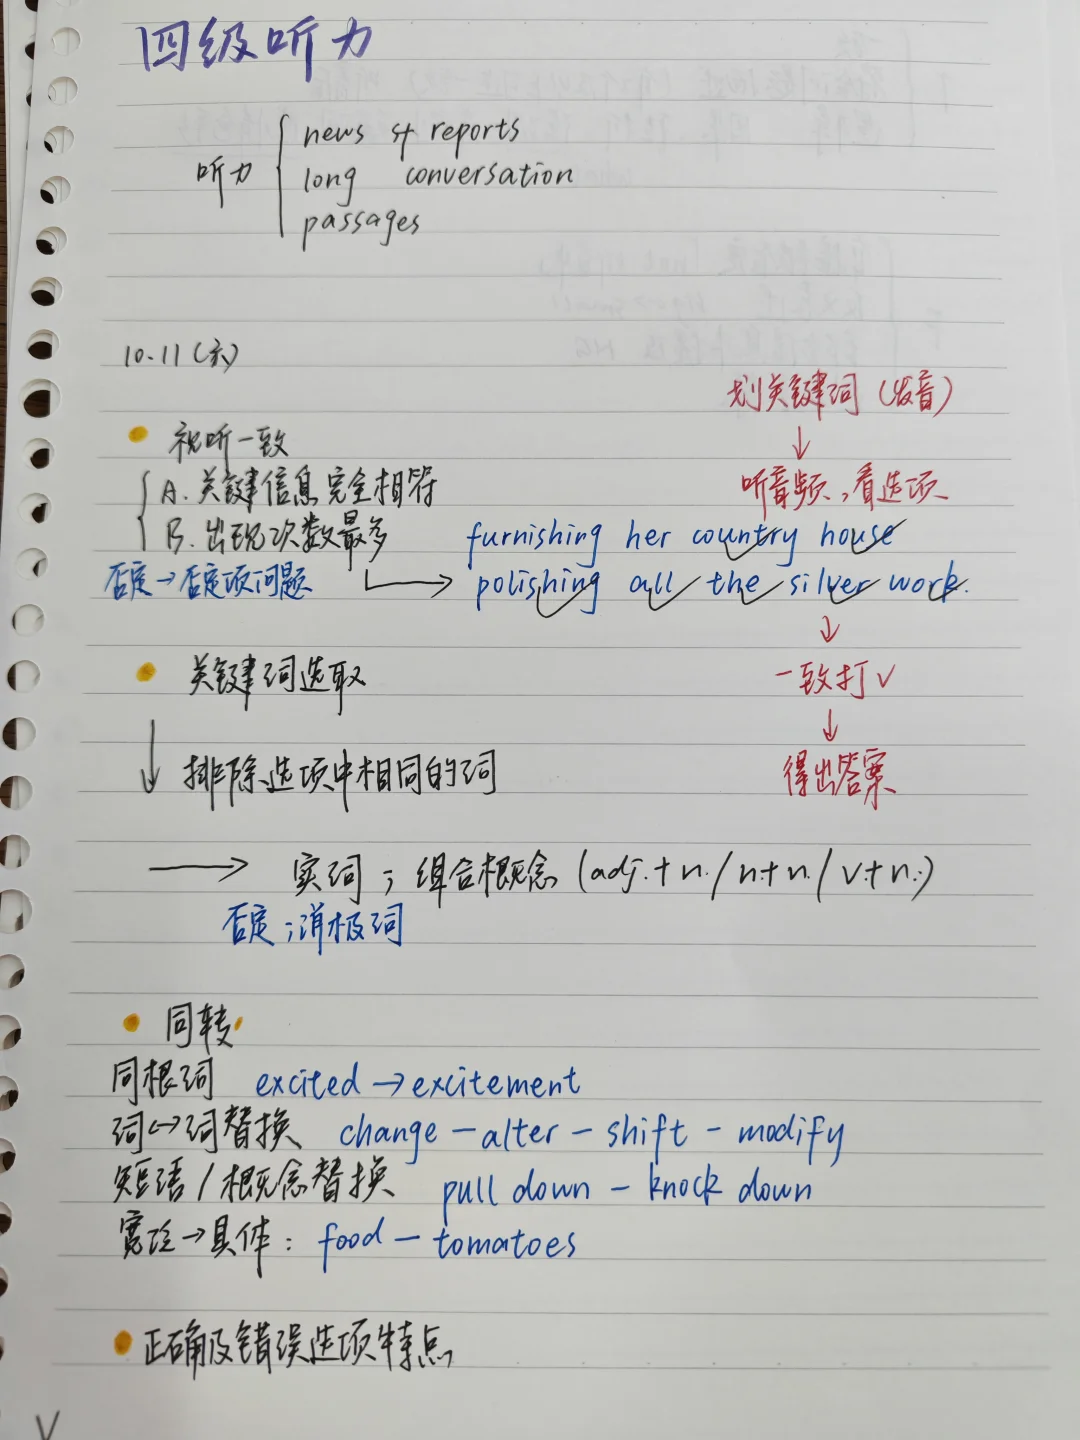 四级听力
听力
news reports
long conversation
passages
10.11(六)
划关键词(发音)
↓
听音频,看选项
• 视听一致
A. 关键信息完全相符
B. 出现次数最多
furnishing her country house
否定→否定项问题
polishing all the silver work.
↓
一致打✓
↓
得出答案
• 关键词选取
↓ 排除选项中相同的词
→ 实词;组合概念(adj.+n./n+n./v+n.)
否定;消极词
• 同转
同根词 excited→excitement
词↔词替换 change-alter-shift-modify
短语/概念替换 pull down-knock down
宽泛→具体: food-tomatoes
• 正确及错误选项特点